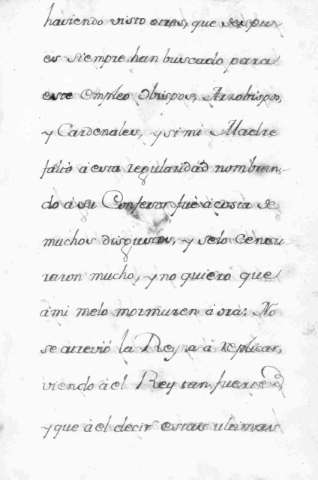 haviendo visto otras, que despues
es siempre han buscado para
este Empleo Obispos, Arzobispos,
y Cardenales, y si mi Madre
faltó á esta regularidad nombran-
do á su Confesor fué á costa de
muchos disgustos, y se lo Censu
raron mucho, y no quiero que
á mi me lo mormuren á ora: No
se atrevió la Reyna á replicar,
viendo á el Rey tan fuerte
y que á el decir estas ultimas